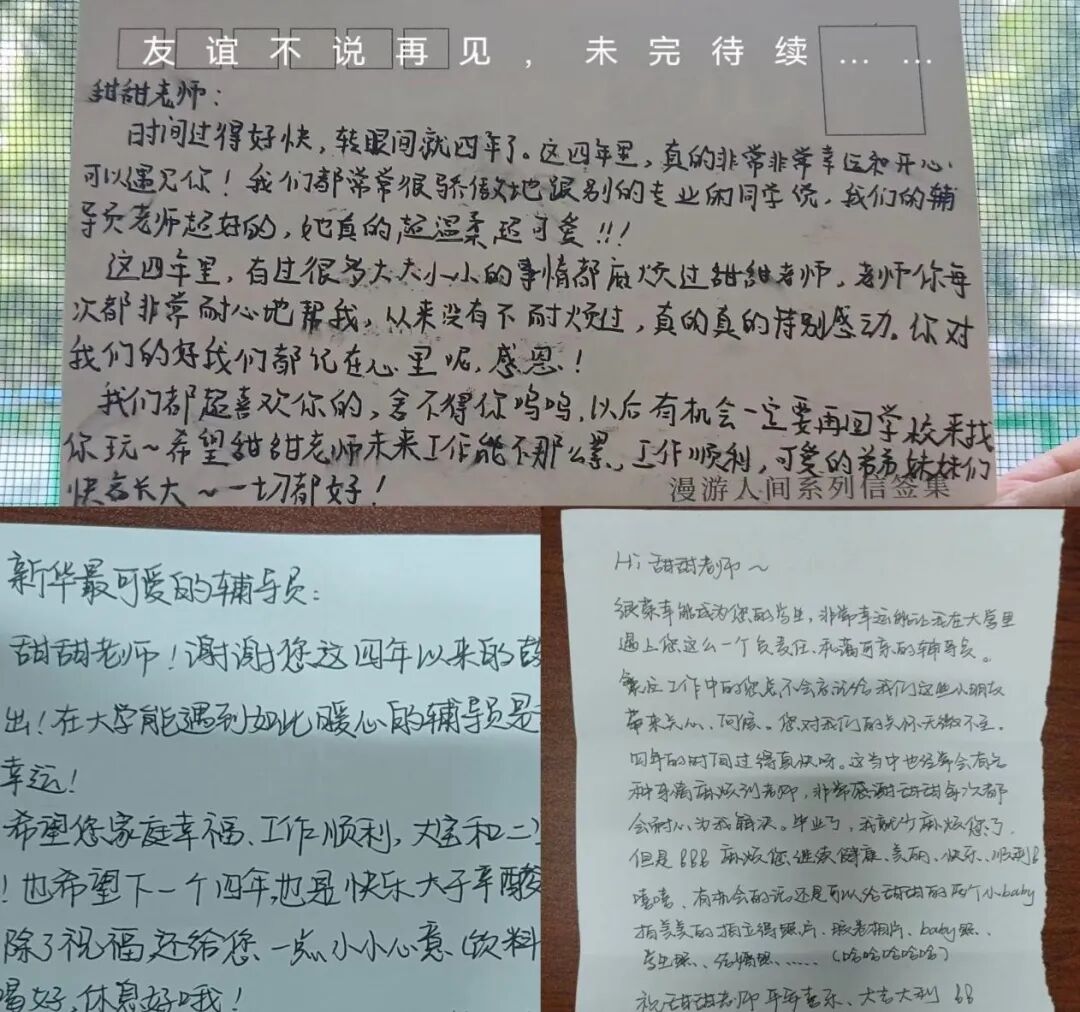 友谊不说再见，未完待续……
甜甜老师：
时间过得好快，转眼间就四年了。这四年里，真的非常非常幸运和开心
可以遇见你！我们都常常很骄傲地跟别的专业的同学说，我们的辅
导员老师超好的，她真的超温柔超可爱!!!
这四年里，有过很多大大小小的事情都麻烦过甜甜老师，老师你每
次都非常耐心地帮我，从来没有不耐烦过，真的真的特别感动。你对
我们的好我们都记在心里呢，感恩！
我们都超喜欢你的，舍不得你呜呜，以后有机会一定要再回学校来找
你玩～希望甜甜老师未来工作能不那么累，工作顺利，可爱的弟弟妹妹们
快高长大～一切都好！
漫游人间系列信签集
新华最可爱的辅导员：
甜甜老师！谢谢您这四年以来的
出！在大学能遇到如此暖心的辅导员是
幸运！
希望您家庭幸福、工作顺利，大宝和二
！也希望下一个四年，也是快乐大于辛酸
除了祝福，还给您一点小小心意（饮料
喝好，休息好哦！
Hi 甜甜老师～
很荣幸能成为您的学生，非常幸运能让我在大学里
遇上您这么一个负责任、和蔼可亲的辅导员。
工作中的您总不会忘记给我们这些小朋友
带来关心、问候。您对我们的关怀无微不至。
四年的时间过得真快呀。这当中也经常会有各
种事情麻烦到老师，非常感谢甜甜每次都
会耐心为我解决。毕业了，我就少麻烦您了，
但是 麻烦您继续健康、美丽、快乐、顺利
嘻嘻、有机会的话还是可以给甜甜的两个小baby
拍美美的拍立得照片、相片、baby照、
毕业照、结婚照、……（哈哈哈哈哈）
祝甜甜老师平安喜乐、大吉大利